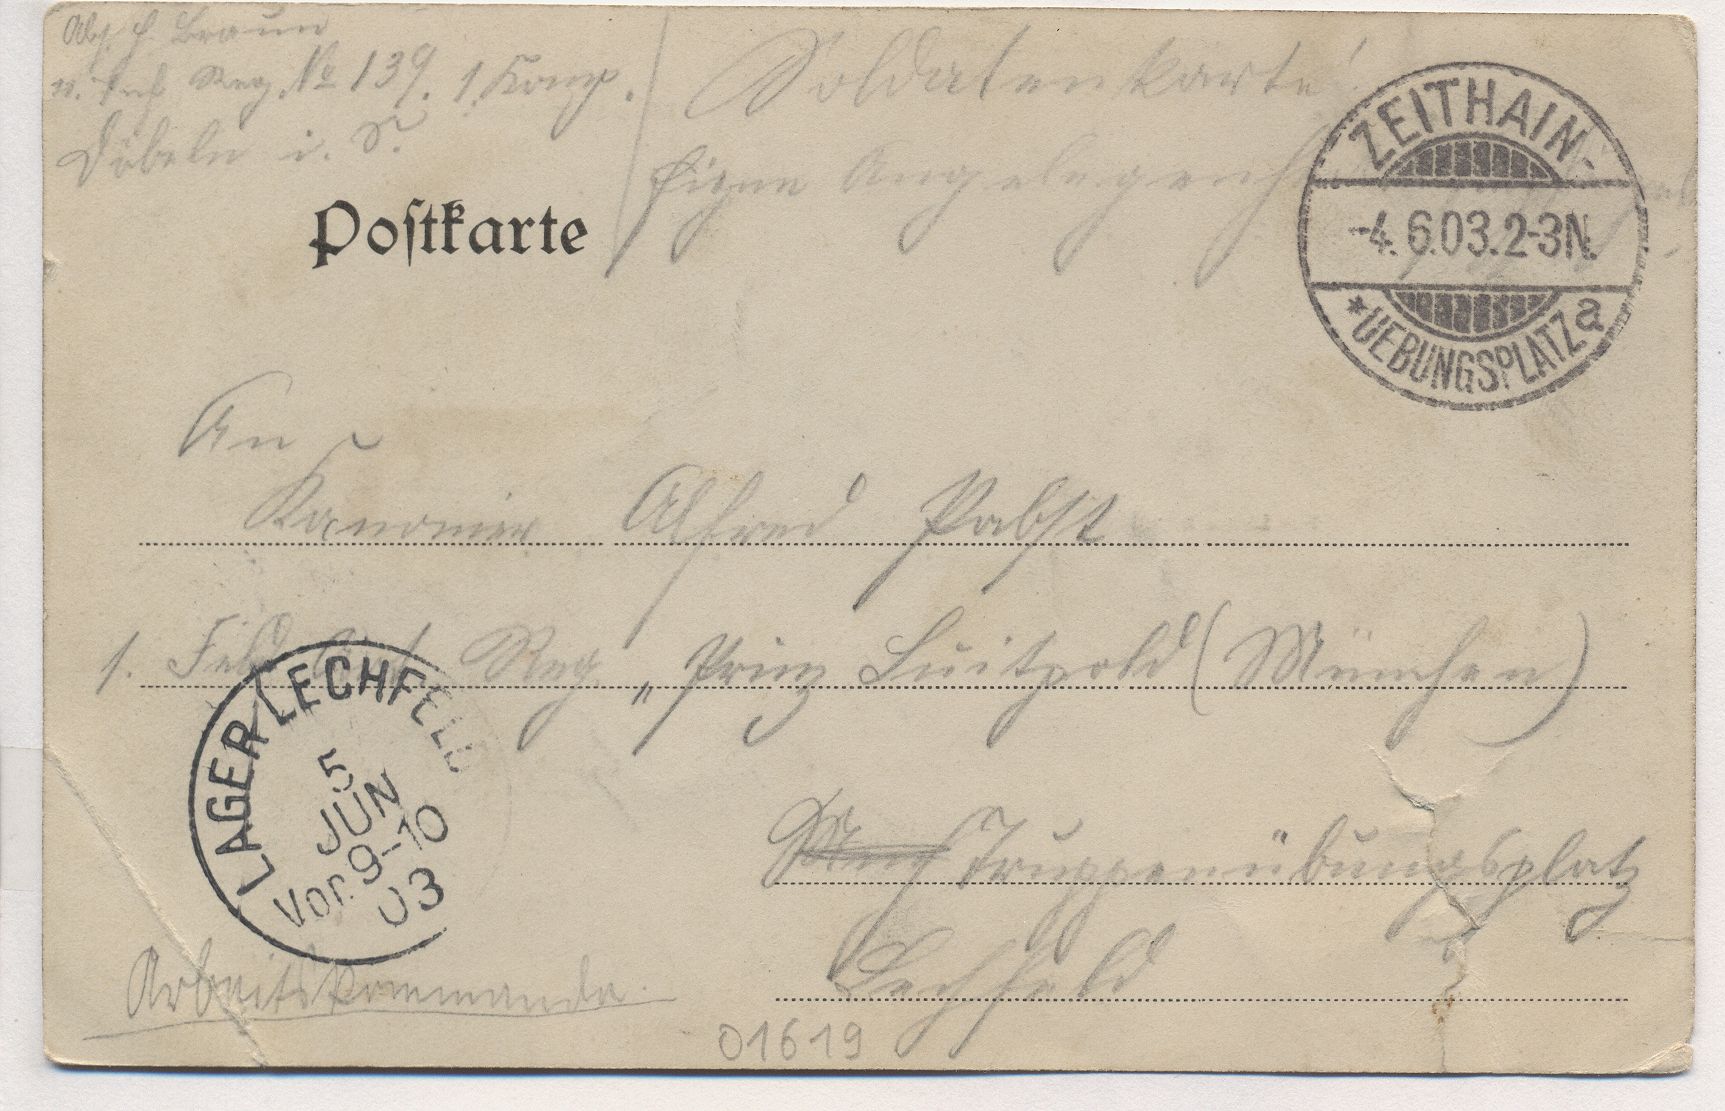 Abs. H. Braun
Reg. No 139. 1. Komp.
Döbeln i. S.
Soldatenkarte!
Eigene Angelegenh
Postkarte
ZEITHAIN-
-4.6.03.2-3N.
*UEBUNGSPLATZ a
An
Kanonier Alfred Pabst
1. Feld Art. Reg „Prinz Luitpold (München)
Truppenübungsplatz
Lechfeld
LAGER LECHFELD
5
JUN
Vor. 9-10
03
Arbeitskommando.
01619